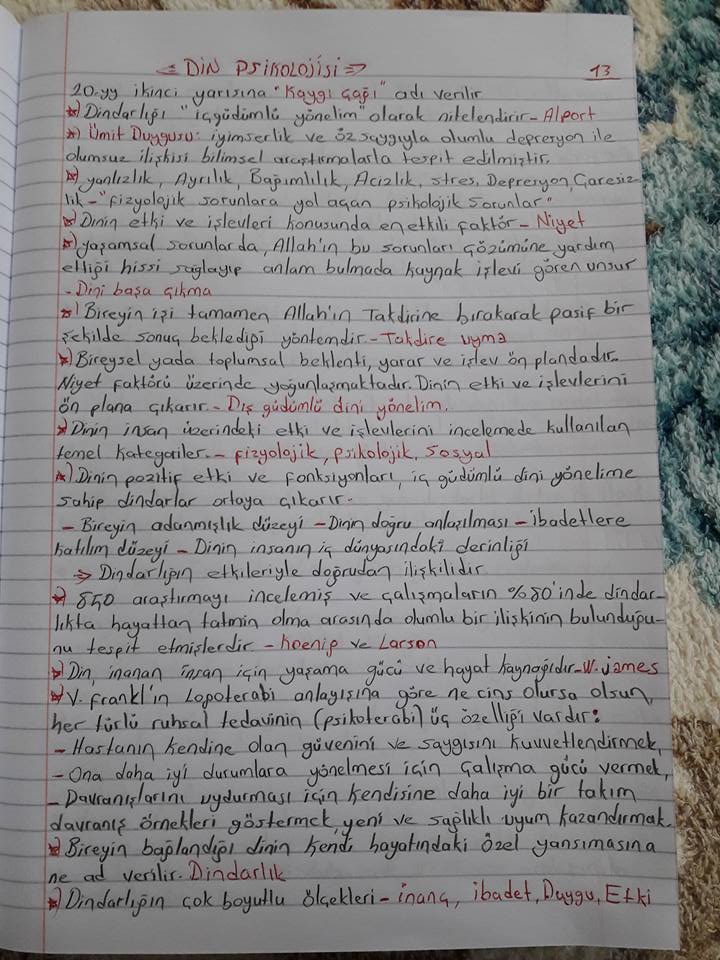 ⇐ DİN PSİKOLOJİSİ ⇒ 13
20.yy ikinci yarısına "Kaygı Çağı" adı verilir
*) Dindarlığı "içgüdümlü yönelim" olarak nitelendirir - Alport
*) Ümit Duygusu: iyimserlik ve öz saygıyla olumlu depresyon ile
olumsuz ilişkisi bilimsel araştırmalarla tespit edilmiştir.
*) yanlızlık, Ayrılık, Bağımlılık, Acizlik, stres, Depresyon, Çaresiz-
lik - "fizyolojik sorunlara yol açan psikolojik sorunlar"
*) Dinin etki ve işlevleri konusunda en etkili faktör - Niyet
*) yaşamsal sorunlarda, Allah'ın bu sorunları çözümüne yardım
ettiği hissi sağlayıp anlam bulmada kaynak işlevi gören unsur
- Dini başa çıkma
*) Bireyin işi tamamen Allah'ın Takdirine bırakarak pasif bir
şekilde sonuç beklediği yöntemdir. - Takdire uyma
*) Bireysel yada toplumsal beklenti, yarar ve işlev ön plandadır.
Niyet faktörü üzerinde yoğunlaşmaktadır. Dinin etki ve işlevlerini
ön plana çıkarır. - Dış güdümlü dini yönelim.
*) Dinin insan üzerindeki etki ve işlevlerini incelemede kullanılan
temel kategoriler. - fizyolojik, psikolojik, sosyal
*) Dinin pozitif etki ve fonksiyonları, iç güdümlü dini yönelime
sahip dindarlar ortaya çıkarır.
- Bireyin adanmışlık düzeyi - Dinin doğru anlaşılması - ibadetlere
katılım düzeyi - Dinin insanın iç dünyasındaki derinliği
⇒ Dindarlığın etkileriyle doğrudan ilişkilidir
*) 850 araştırmayı incelemiş ve çalışmaların %80'inde dindar-
lıkta hayattan tatmin olma arasında olumlu bir ilişkinin bulunduğu-
nu tespit etmişlerdir - Koenig ve Larson
*) Din, inanan insan için yaşama gücü ve hayat kaynağıdır - W. James
*) V. frankl'ın Logoterabi anlayışına göre ne cins olursa olsun,
her türlü ruhsal tedavinin (psikoterabi) üç özelliği vardır:
- Hastanın kendine olan güvenini ve saygısını kuvvetlendirmek,
- Ona daha iyi durumlara yönelmesi için çalışma gücü vermek,
- Davranışlarını uydurması için kendisine daha iyi bir takım
davranış örnekleri göstermek, yeni ve sağlıklı uyum kazandırmak.
*) Bireyin bağlandığı dinin kendi hayatındaki özel yansımasına
ne ad verilir. Dindarlık
*) Dindarlığın çok boyutlu ölçekleri - inanç, ibadet, Duygu, Etki